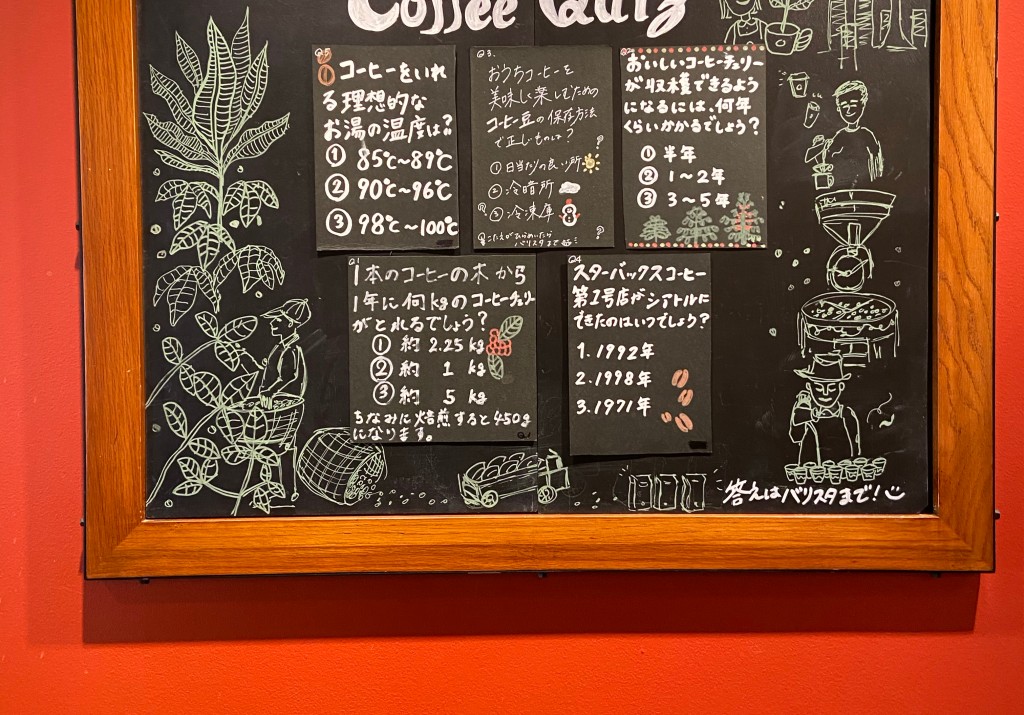 Coffee Quiz
Q5
コーヒーをいれ
る理想的な
お湯の温度は??
① 85℃〜89℃
② 90℃〜96℃
③ 98℃〜100℃
Q3.
おうちコーヒーを
美味しく楽しむための
コーヒー豆の保存方法
で正しいものは?
① 日当たりの良い所
② 冷暗所
③ 冷凍庫
こたえがひらめいたら
バリスタまで
Q2
おいしいコーヒーチェリー
が収穫できるよう
になるには、何年
くらいかかるでしょう?
① 半年
② 1〜2年
③ 3〜5年
Q1
1本のコーヒーの木から
1年に何kgのコーヒーチェリー
がとれるでしょう?
① 約 2.25 kg
② 約 1 kg
③ 約 5 kg
ちなみに焙煎すると450g
になります。
Q1
Q4
スターバックスコーヒー
第1号店がシアトルに
できたのはいつでしょう?
1. 1992年
2. 1998年
3. 1971年
答えはバリスタまで!